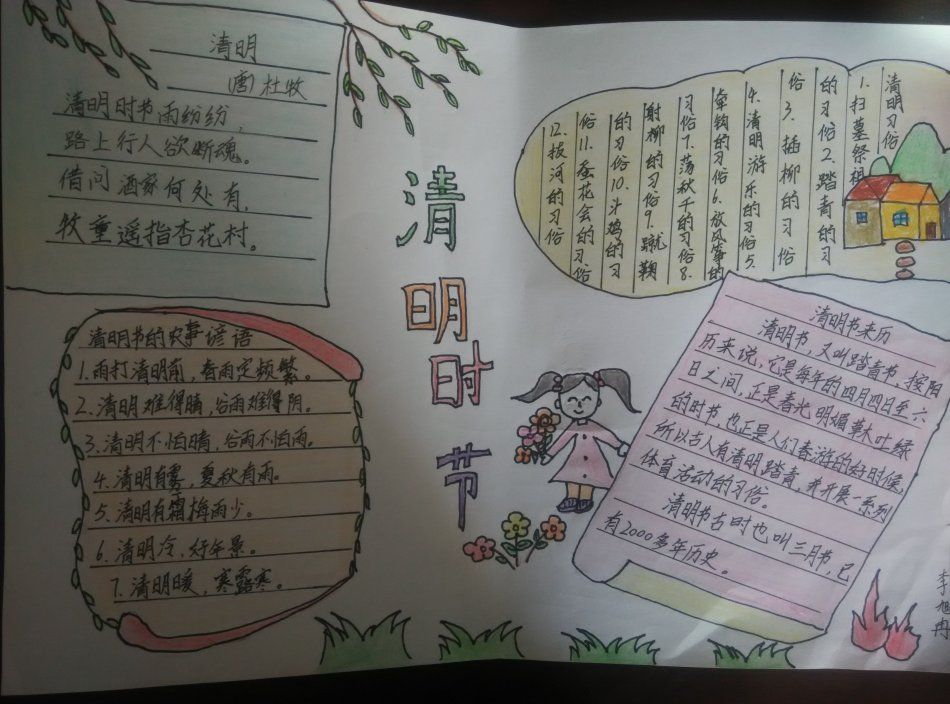 清明
(唐)杜牧
清明时节雨纷纷，
路上行人欲断魂。
借问酒家何处有，
牧童遥指杏花村。
清明节的农事谚语
1.雨打清明前，春雨定频繁。
2.清明难得晴，谷雨难得阴。
3.清明不怕晴，谷雨不怕雨。
4.清明有雾，夏秋有雨。
5.清明有霜梅雨少。
6.清明冷，好年景。
7.清明暖，寒露寒。
清明时节
清明习俗
1.扫墓祭祖
的习俗2.踏青的习
俗3.插柳的习俗
4.清明游乐的习俗5.
牵钩的习俗6.放风筝的
习俗7.荡秋千的习俗8.
射柳的习俗9.蹴鞠
的习俗10.斗鸡的习
俗11.蚕花会的习俗
12.拔河的习俗
清明节来历
清明节，又叫踏青节，按阳
历来说，它是每年的四月四日至六
日之间，正是春光明媚草木吐绿
的时节，也正是人们春游的好时候，
所以古人有清明踏青，并开展一系列
体育活动的习俗。
清明节古时也叫三月节，已
有2000多年历史。
李旭冉